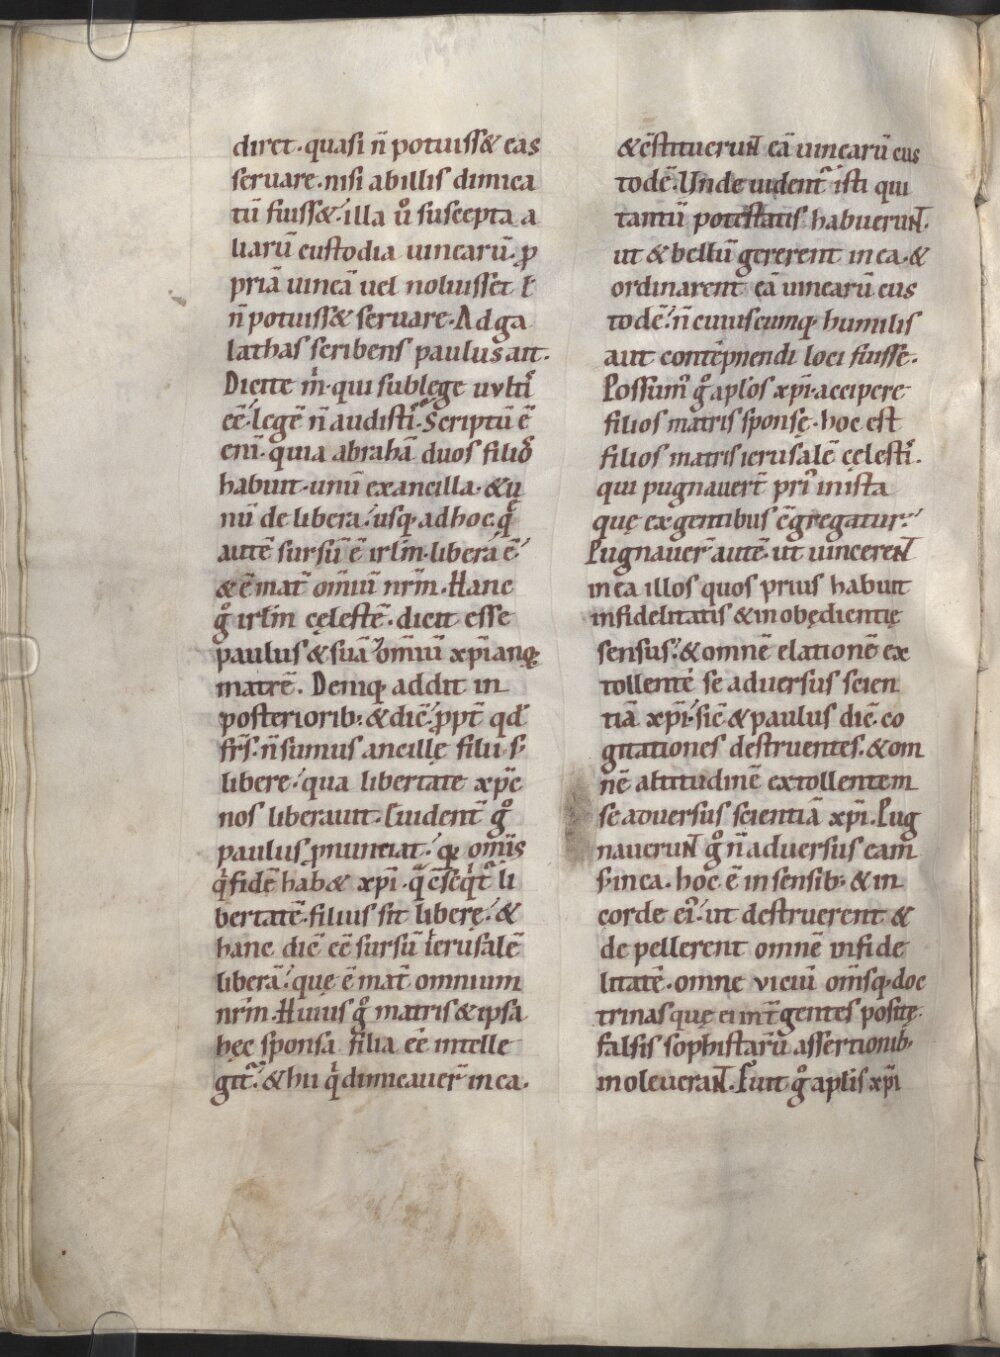 diret. quasi n̄ potuiss& eas
seruare. nisi ab illis dimica
tū fuiss&. illa ů suscepta a
liarū custodia uinearū. ꝓ
priā uineā uel noluisset ł
n̄ potuiss& seruare. Ad ga
lathas scribens paulus ait.
Dicite m̍. qui sub lege uultı̄
eē. legē n̄ audistı̄. Scriptū ē
enī. quia abrahā duos filio
habuit. unū ex ancilla. & u
nū de libera. usq; ad hoc. q̄
autē sursū ē irłm. libera ē.
& ē mat̄ om̄iū nr̄m. Hanc
g̊ irłm cęlestē. dicit esse
paulus & suā & om̄iū xp̄ianoꝝ
matrē. Deniq; addit in
posteriorib; & dic̄. ꝓpt̄ qd̄
fr̄s. n̄ sumus ancillę filii s;
liberę. qua libertate xp̄c
nos liberauit. Euident̄ g̊
paulus ꝓnunciat. qꝫ om̄is
q̍ fidē hab& xp̄i. q̄ c̄seq̍t̄ li
bertatē. filius sit liberę. &
hanc dic̄ eē sursū ierusalē
liberā. quę ē mat̄ omnium
nr̄m. Huius g̊ matris & ipsa
hęc sponsa filia eē intelle
git̄. & hii q̍ dimicauer̄ in ea.
& c̄stituerunt eā uinearū cus
todē. Unde uident̄ isti qui
tantū potestatis habuerunt.
ut & bellū gererent in ea. &
ordinarent eā uinearū cus
todē. n̄ cuiuscumq; humilis
aut contēpnendi loci fuisse.
Possum̄ g̊ apłos xp̄i. accipere
filios matris sponsę. hoc est
filios matris ierusalē cęlestı̄.
qui pugnauert̄ pri̍ in ista
quę ex gentibus c̄gregatur.
Pugnauer̄ autē. ut uincerent
in ea illos quos prius habuit
infidelitatis & inobędientię
sensus. & omnē elationē ex
tollentē se aduersus scien
tiā xp̄i. sic̄ & paulus dic̄. co
gitationes destruentes. & om
nē altitudinē extollentem
se aduersus scientiā xp̄i. Pug
nauerunt g̊ n̄ aduersus eam
s; in ea. hoc ē in sensib; & in
corde ei̍. ut destruerent &
depellerent omnē infide
litatē. omne viciū om̄sq; doc
trinas quę ei int̄ gentes positę.
falsis sophistarū assertionib;
inoleuerant. Fuit g̊ apłis xp̄i